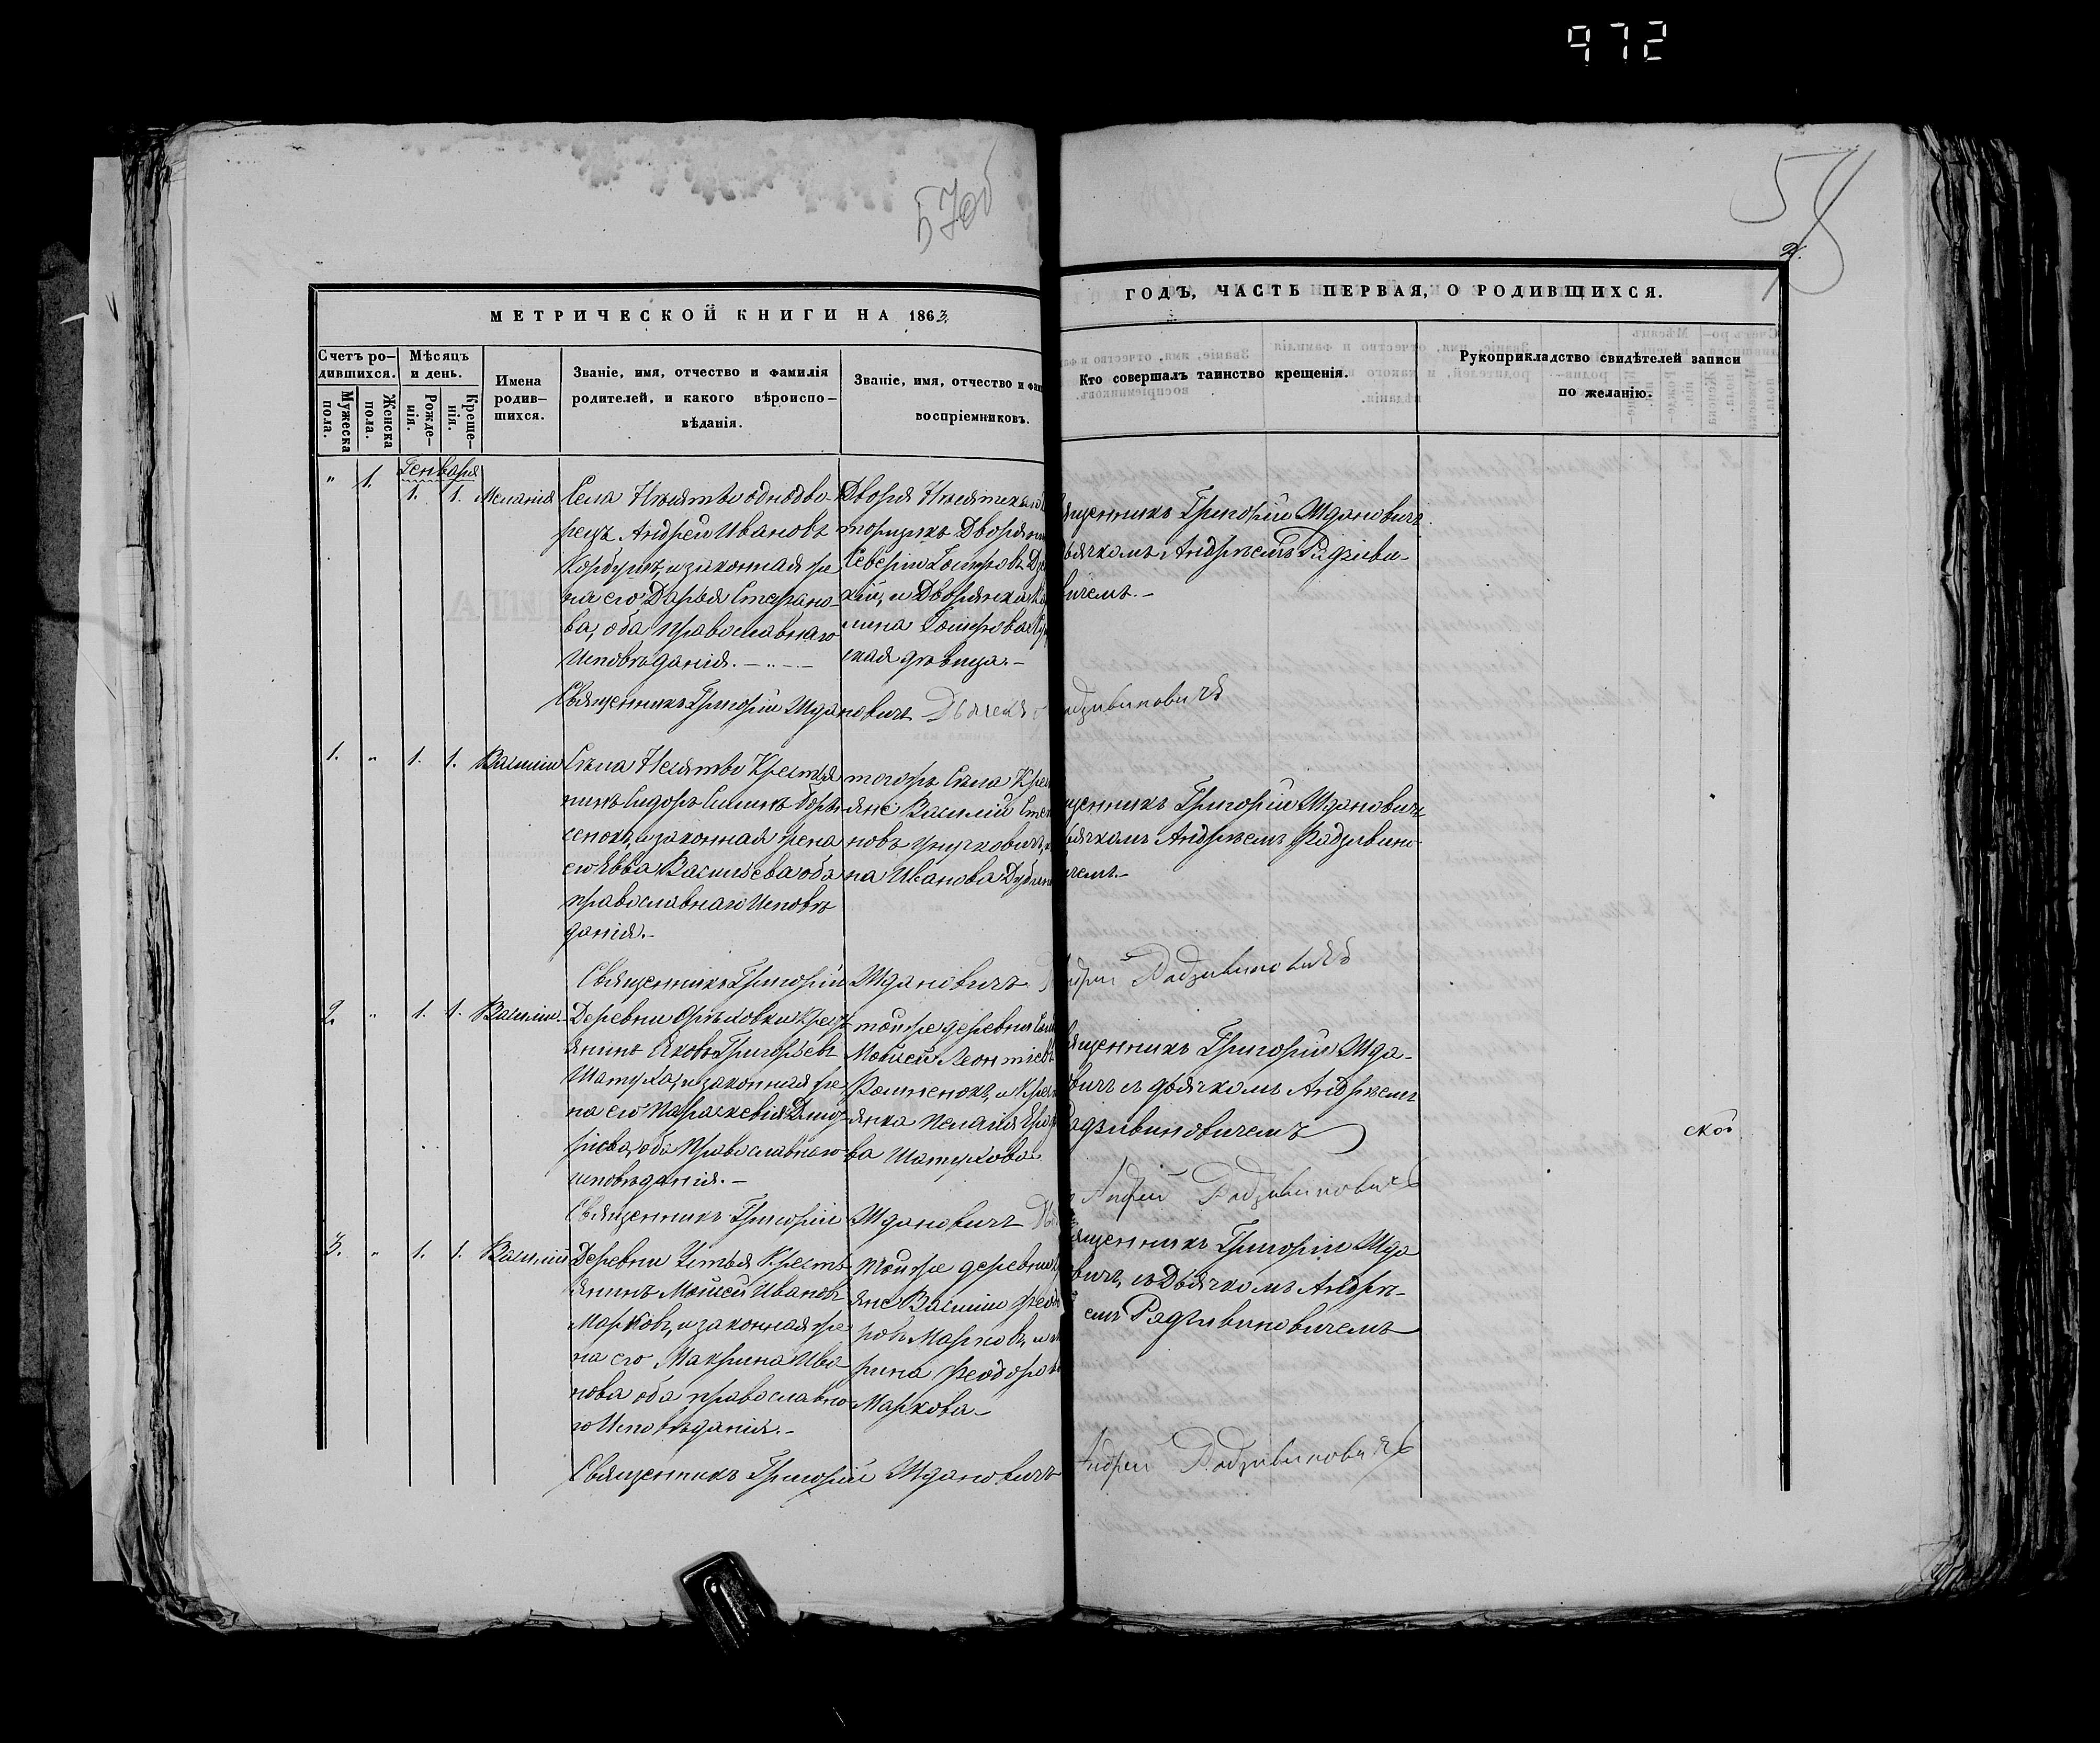 972
57об
58
2.
МЕТРИЧЕСКОЙ КНИГИ НА 1863.
ГОДЪ, ЧАСТЬ ПЕРВАЯ, О РОДИВШИХСЯ.
Счетъ ро-
дившихся.
Мужеска
пола.
Женска
пола.
Мѣсяцъ
и день.
Рожде-
нія.
Креще-
нія.
Имена
родив-
шихся.
Званіе, имя, отчество и фамилія
родителей, и какого вѣроиспо-
вѣданія.
Званіе, имя, отчество и фам
воспріемниковъ.
Кто совершалъ таинство крещенія.
Рукоприкладство свидѣтелей записи
по желанію.
Генваря
" 1. 1. 1. Меланія
Села однодво-
рецъ Андрей Ивановъ
и законная же
на его Дарья Стефано-
ва, оба православнаго
Исповѣданія.
Двора
Дворянин
и Дворянка
ская дѣвица.-
ященникъ Григорій Ждановичъ
ьячкомъ Андрѣемъ Радзиви-
вичемъ.-
Священникъ Григорій Ждановичъ Дьячекъ адзивиновичъ
1. " 1. 1. Василій
Села Крестья
нинъ Сидоръ
и законная жена
его Евва Васильева оба
православнаго Исповѣ
данія.-
тогожъ Села Кре
яне Василій Сте
новъ
на Иванова
щенникъ Григорій Ждановичъ
ьячкомъ Андрѣемъ Радзивино-
чемъ.-
Священникъ Григорій Ждановичъ ндрей Радзивиновичъ
2. " 1. 1. Василій.
Деревни Орѣховки Крест
янинъ Яковъ Григорьевъ
Шатуха, и законная же
на его Параскевія Дмит
ріева, оба Православнаго
исповѣданія.-
той же деревни
Моисей Леонтіевъ
и Крест
янка Пелагія
ва Шатухова.
ященникъ Григорій Жда-
овичъ съ дьячкомъ Андрѣемъ
адзивиновичемъ
ской
Священникъ Григорій Ждановичъ Андрей Радзивиновичъ
3. " 1. 1. Василій
Деревни Устья Кресть
янинъ Моисей Ивановъ
Марковъ, и законная же
на его Макрина Ива
нова оба православна
го Исповѣданія.-
той же деревни
яне Василій Феод
ровъ Марковъ, и
рина Феодоров
Маркова-
ященникъ Григорій Жда
овичъ, съ Дьячкомъ Андрѣ-
емъ Радзивиновичемъ
Священникъ Григорій Ждановичъ Андрей Радзивиновичъ